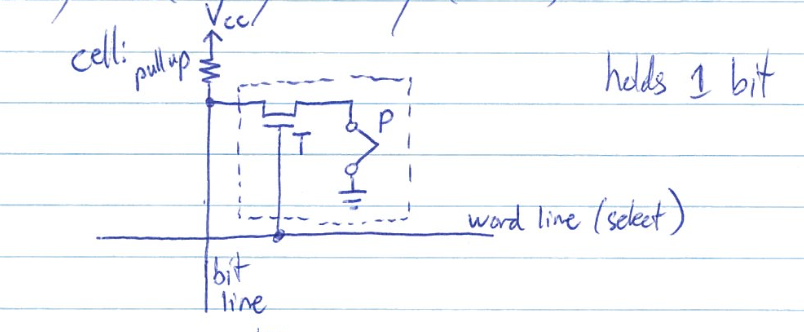 Vcc
cell:
pull up
holds 1 bit
P
T
word line (select)
bit
line